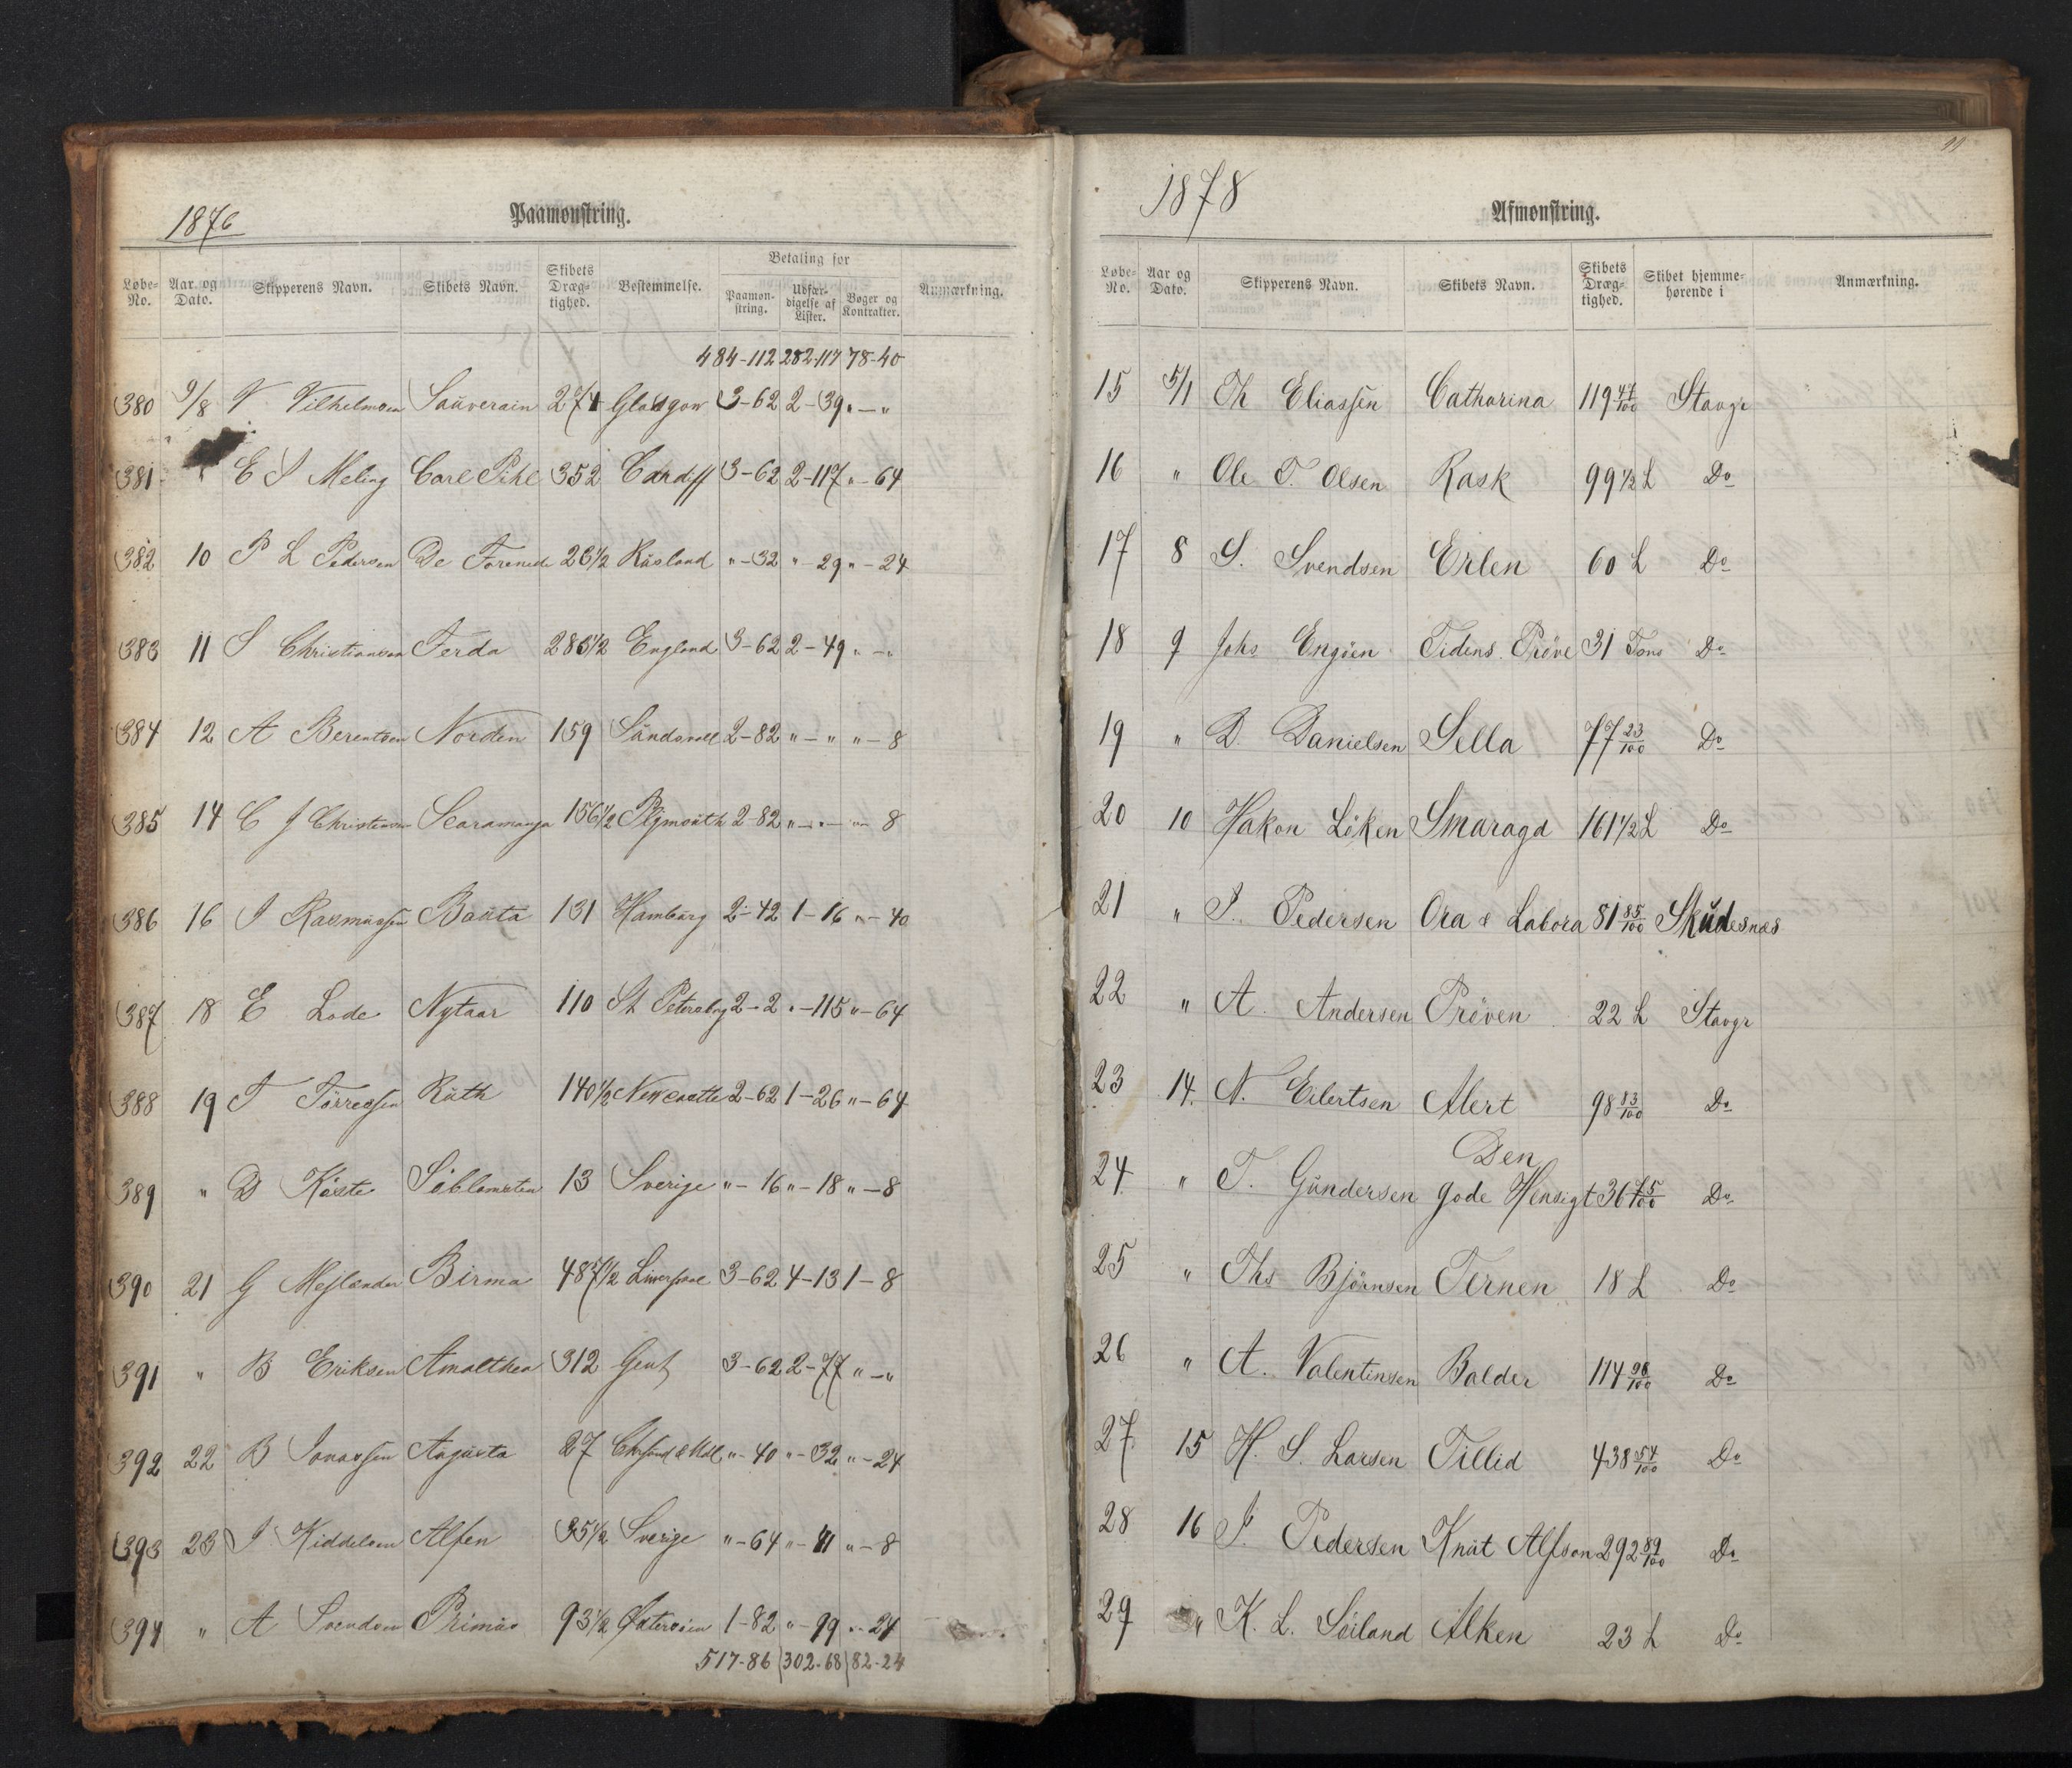 1876
Paamønstring.
Løbe-No. Aar og Dato. Skipperens Navn. Skibets Navn. Skibets Dræg-tighed. Bestemmelse. Betaling for Paamøn-string. Udfær-digelse af Lister. Bøger og Kontrakter. Anmærkning.
484-112 282-117 78-40
380 9/8 V Vilhelmsen Sauverain 274 Glasgow 3-62 2-39 "-"
381 " E I Meling Carl Pihl 352 Cardiff 3-62 2-117 "-64
382 10 P L Pedersen De Forenede 23 1/2 Rusland "-32 "-29 "-24
383 11 S Christiansen Terda 285 1/2 England 3-62 2-49 "-"
384 12 A Berentsen Norden 159 Sundsvall 2-82 "-" "-8
385 14 C J Christensen Scaramanga 156 1/2 Plymouth 2-82 "-" "-8
386 16 I Rasmussen Bauta 131 Hamburg 2-42 1-16 "-40
387 18 E Lode Nytaar 110 St Petersburg 2-2 "-115 "-64
388 19 T Torressen Ruth 140 1/2 Newcastle 2-62 1-26 "-64
389 " D Köste Söblomsten 13 Sverige "-16 "-18 "-8
390 21 G Mejlænder Birma 487 1/2 Liverpool 3-62 4-13 1-8
391 " B Eriksen Amalthea 312 Gent 3-62 2-77 "-"
392 22 B Jonassen Augusta 27 "-40 "-32 "-24
393 23 I Kiddelsen Alfen 35 1/2 Sverige "-64 "-41 "-8
394 " A Svendsen Primus 93 1/2 Østersöen 1-82 "-99 "-24
517-86 302-68 82-24
11
1878
Afmønstring.
Løbe-No. Aar og Dato. Skipperens Navn. Skibets Navn. Skibets Dræg-tighed. Skibet hjemme-hørende i Anmærkning.
15 5/1 Th Eliassen Catharina 119 47/100 Stavgr
16 " Ole T. Olsen Rask 99 1/2 L Do
17 8 S. Svendsen Erlen 60 L Do
18 9 Johs Engöen Tidens Pröve 31 Tons Do
19 " D. Danielsen Sella 77 23/100 Do
20 10 Hakon Löken Smaragd 161 1/2 L Do
21 " I. Pedersen Ora & Labora 81 85/100 Skudesnæs
22 " A. Andersen Pröven 22 L Stavgr
23 14. N. Eilertsen Alert 98 83/100 Do
24 " T. Gundersen Den gode Hensigt 36 75/100 Do
25 " Ths Björnsen Ternen 18 L Do
26 " A. Valentinsen Balder 114 98/100 Do
27 15 H. S. Larsen Tillid 438 54/100 Do
28 16 J. Pedersen Knut Alfson 292 89/100 Do
29 " K. L. Söiland Alken 23 L Do